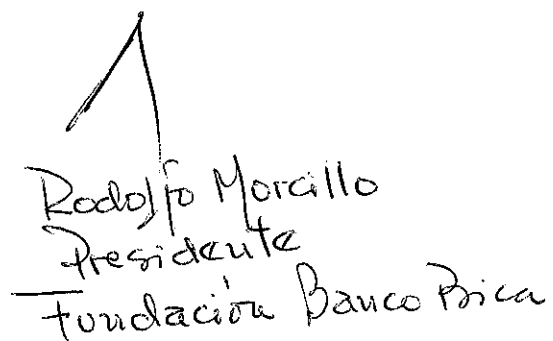 Rodolfo Morcillo
Presidente
Fundación Banco Brica